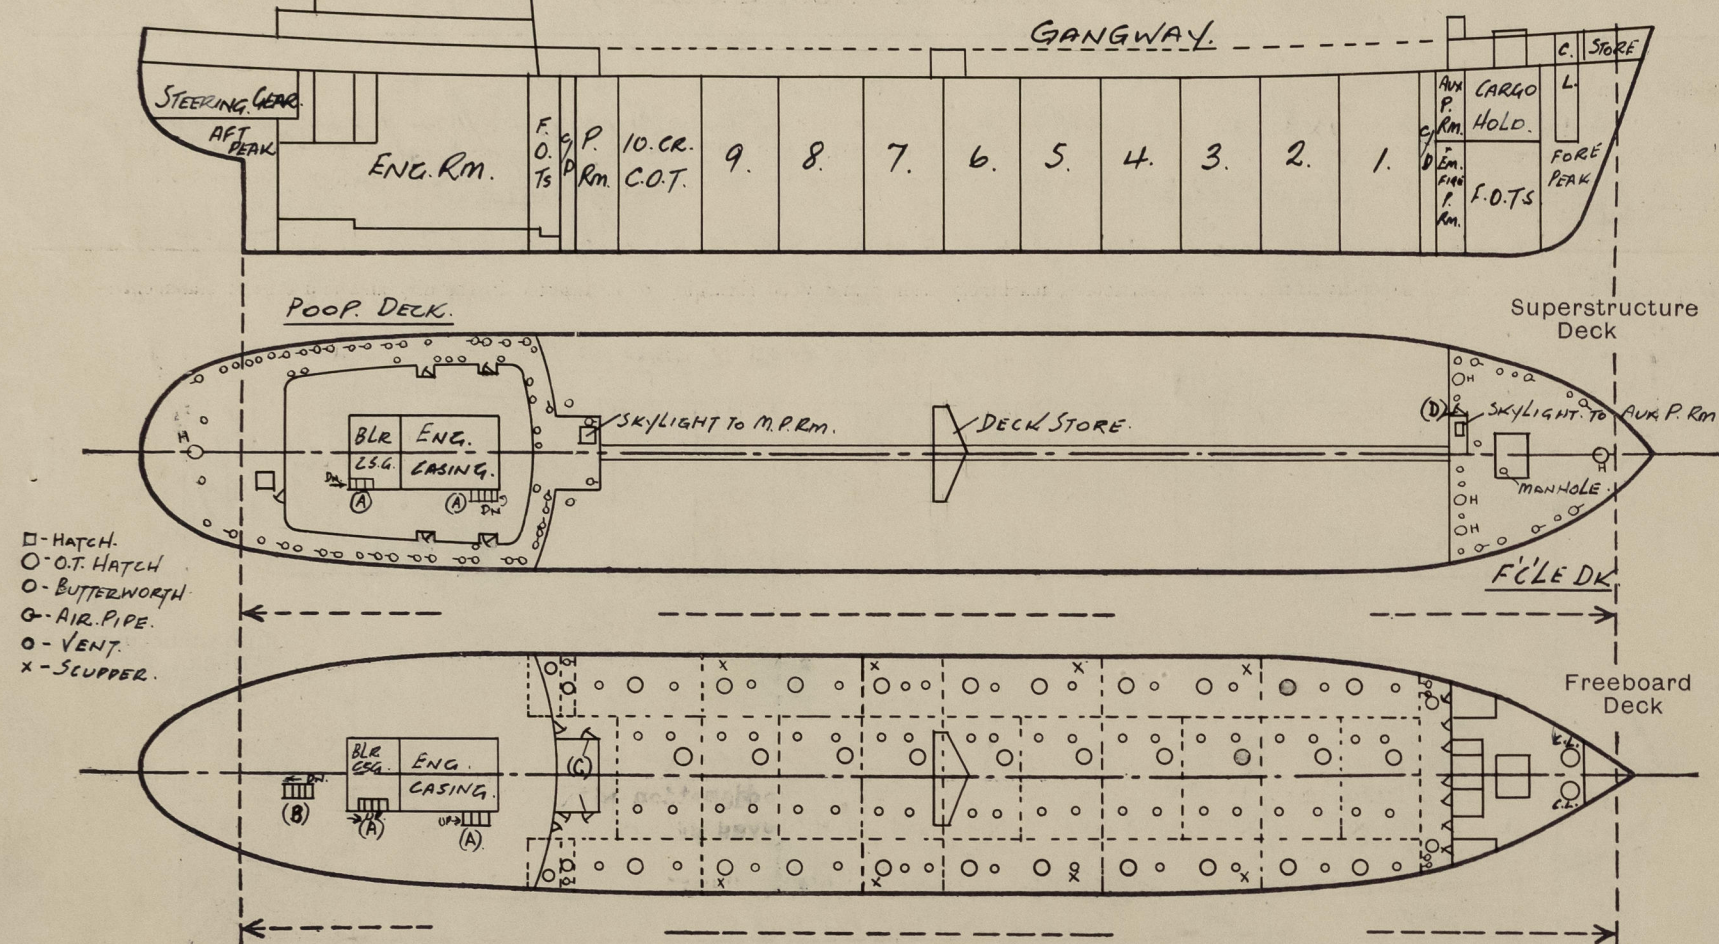 GANGWAY.
C. STORE
L.
STEERING. GEAR.
AFT
PEAK
ENG. RM.
F.
O.
TS
C/D
P.
RM.
10. CR.
C.O.T.
9.
8.
7.
6.
5.
4.
3.
2.
1.
C/D
AUX
P.
RM.
EM.
FIRE
P.
RM.
CARGO
HOLD.
F.O.TS
FORE
PEAK
POOP. DECK.
Superstructure
Deck
H
BLR
CSG.
ENG.
CASING.
DN.
(A)
(A)
DN
SKYLIGHT TO M.P.RM.
DECK STORE.
(D)
H
SKYLIGHT. TO AUX P. RM
MANHOLE.
H
H
H
F'C'LE DK
□ - HATCH.
O - O.T. HATCH
O - BUTTERWORTH
AIR. PIPE.
O - VENT.
X - SCUPPER.
Freeboard
Deck
x x x x
BLR
CSG.
ENG.
CASING.
DN.
(B)
UP
(A)
UP
(A)
(C)
C.L.
C.L.
x x x x